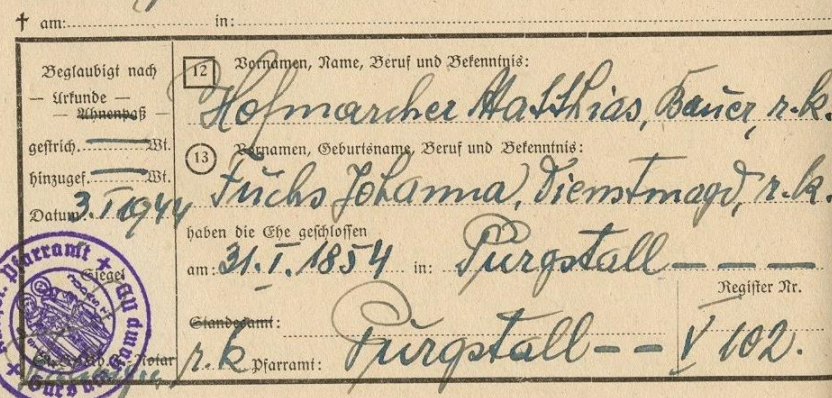 ✝ am: in:
Beglaubigt nach
— Urkunde —
— Ahnenpaß
gestrich. — Wt.
hinzugef. — Wt.
Datum: 3.I.1944
Siegel
Notar
12 Vornamen, Name, Beruf und Bekenntnis:
Hofmarcher Matthias, Bauer, r.k.
13 Vornamen, Geburtsname, Beruf und Bekenntnis:
Fuchs Johanna, Dienstmagd, r.k.
haben die Ehe geschlossen
am: 31.I.1854 in: Purgstall — — —
Register Nr.
Standesamt:
r.k Pfarramt: Purgstall — — V 102.
Pfarramt